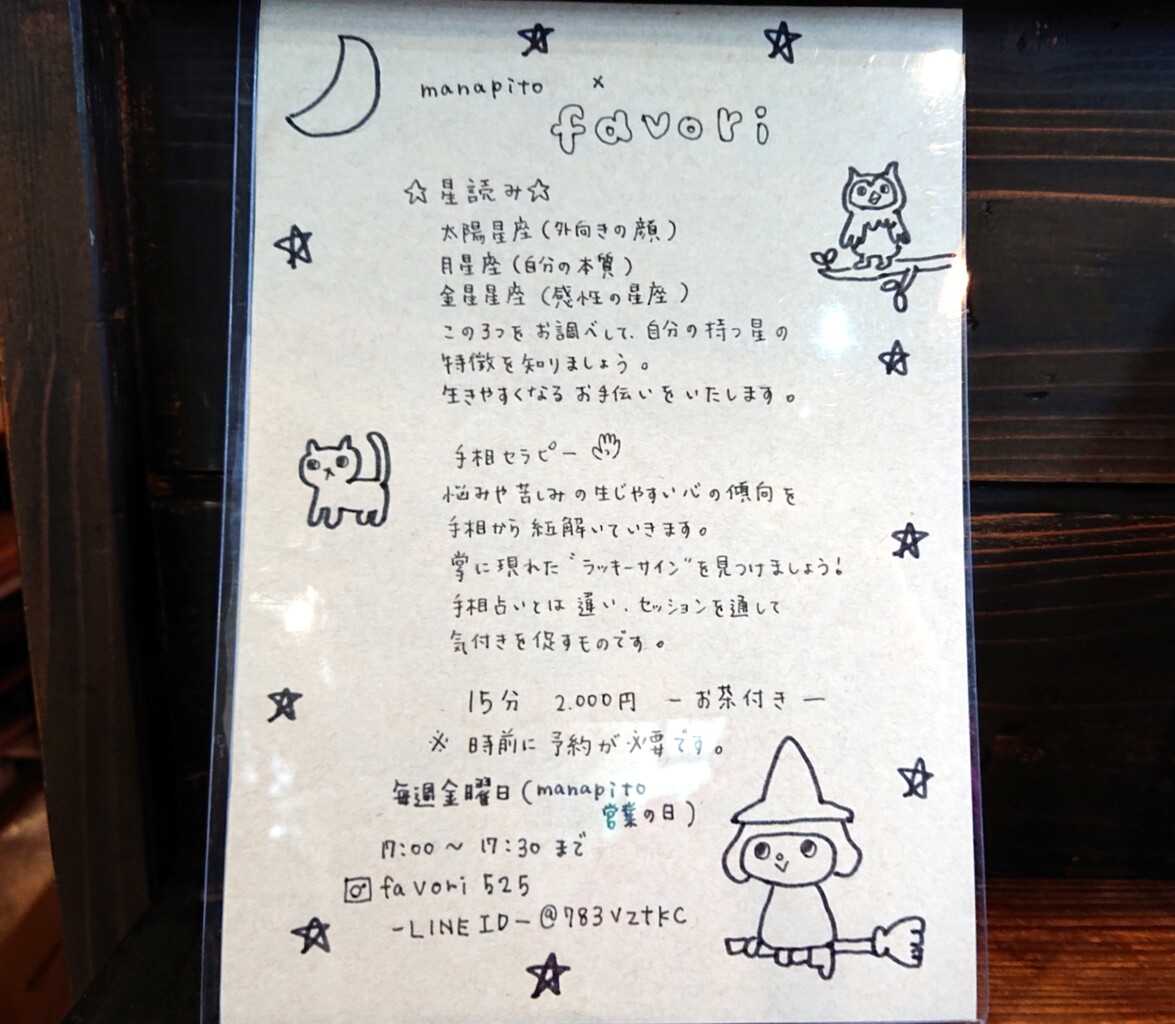 manapito ×
favori
☆星読み☆
太陽星座(外向きの顔)
月星座(自分の本質)
金星星座(感性の星座)
この3つをお調べして、自分の持つ星の
特徴を知りましょう。
生きやすくなるお手伝いをいたします。
手相セラピー
悩みや苦しみの生じやすい心の傾向を
手相から紐解いていきます。
掌に現れた“ラッキーサイン”を見つけましょう!
手相占いとは違い、セッションを通して
気付きを促すものです。
15分 2.000円 ーお茶付きー
※ 時前に予約が必要です。
毎週金曜日(manapito
営業の日)
17:00〜17:30まで
favori 525
-LINE ID-@783vztkc